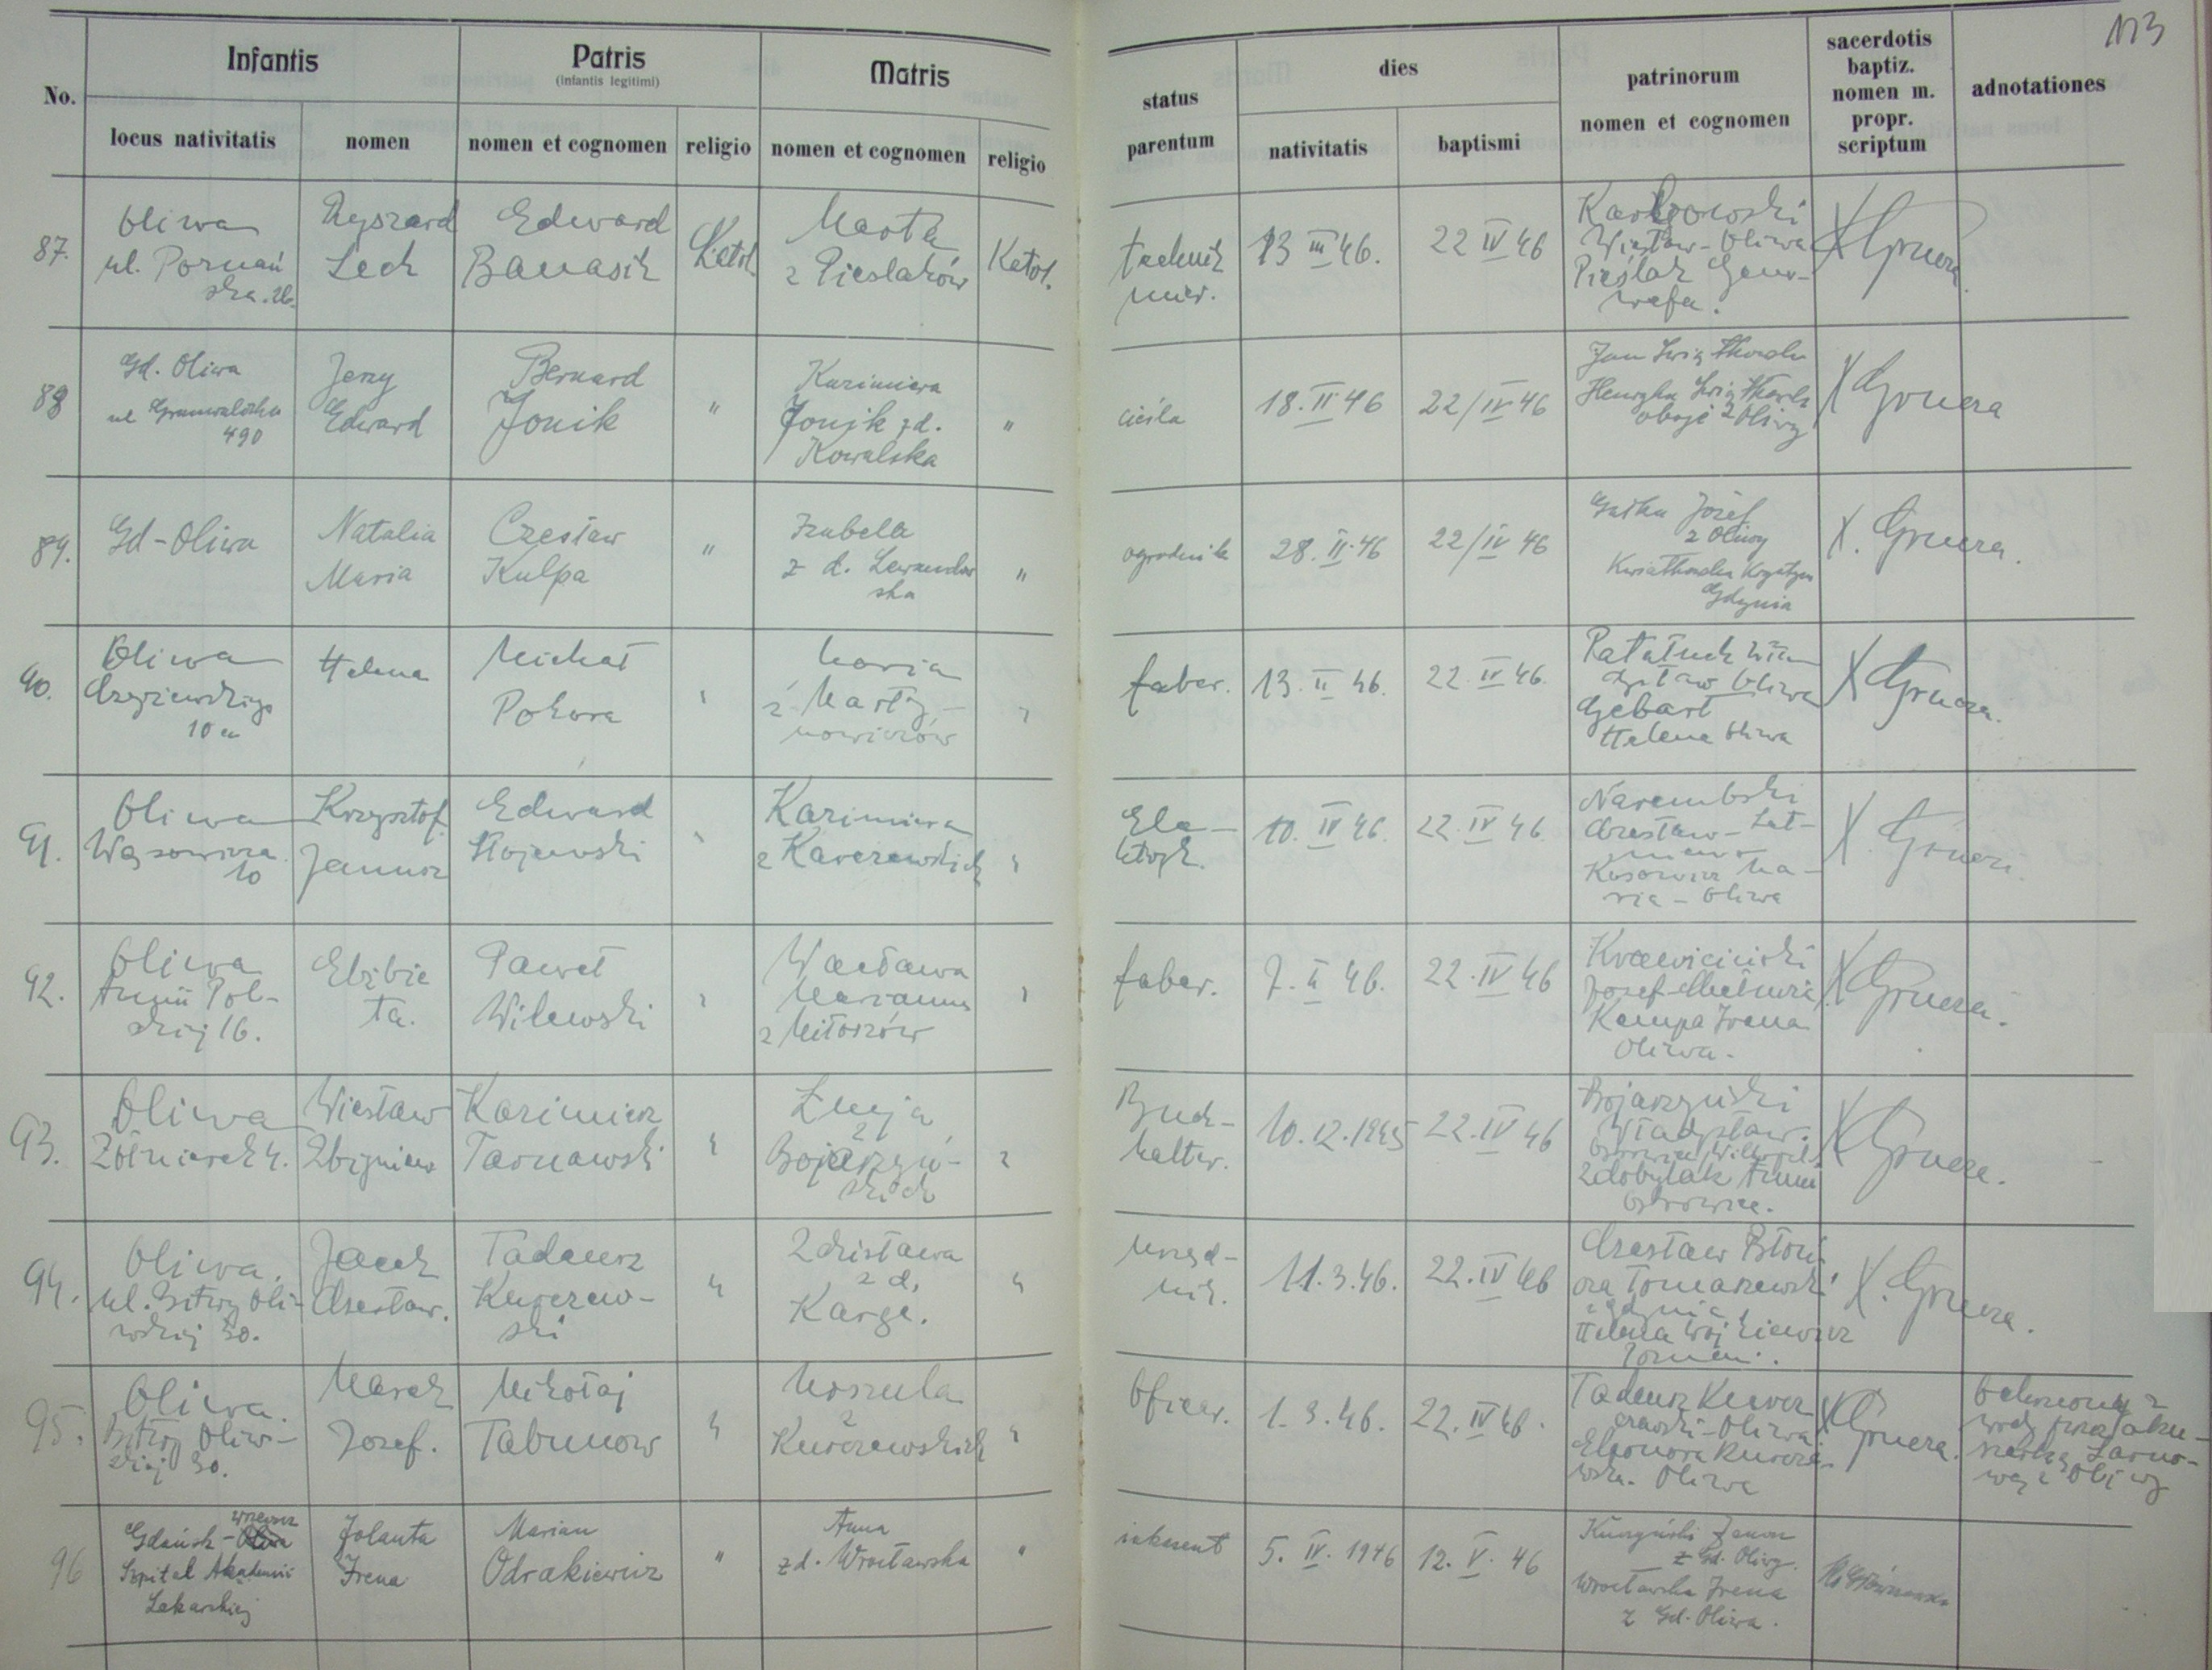 113
No.
Infantis
Patris
(infantis legitimi)
Matris
locus nativitatis
nomen
nomen et cognomen
religio
nomen et cognomen
religio
status
parentum
dies
nativitatis
baptismi
patrinorum
nomen et cognomen
sacerdotis
baptiz.
nomen m.
propr.
scriptum
adnotationes
87.
Oliwa
ul. Poznań
ska. 26.
Ryszard
Lech
Edward
Banasik
Katol.
Marta
z Pieslaków
Katol.
technik
mier.
13 III 46.
22 IV 46
Wiesław - Oliwa
Pieślak Geno-
wefa.
X Gruera
88
Gd. Oliwa
ul Grunwaldzka
490
Jerzy
Edward
Bernard
Jonik
"
Kazimiera
Jonik zd.
Kowalska
"
cieśla
18. II 46
22/IV 46
Jan
Henryka
oboje z Oliwy
X Gruera
89.
Gd-Oliwa
Natalia
Maria
Czesław
Kulpa
"
Izabella
z d. Lewandow
ska
"
ogrodnik
28. II. 46
22/IV 46
Józef
z Oliwy
Gdynia
X. Gruera.
90.
Oliwa
10 a
Helena
Michał
Pokora
Maria
z Marty-
nowiczów
faber.
13. II 46.
22. IV 46.
Oliwa
Gebart
Helena Oliwa
X Gruera.
91.
Oliwa
Wąsowicza
10
Krzysztof
Janusz
Edward
Kazimiera
z Karczewskich
Ele-
ktryk.
10. IV 46.
22. IV 46.
Czesław -
Ma-
ria - Oliwa
X. Gruera.
92.
Oliwa
Armii Pol-
skiej 16.
Elżbie
ta.
Paweł
Wilewski
Wacława
Marianna
z Mitorzów
faber.
7. II 46.
22. IV 46
Józef
Kempa Irena
Oliwa.
X Gruera.
93.
Oliwa
Żołnierek 4.
Wiesław
Zbigniew
Kazimierz
Tarnawski
Łucja
z
Bojarzyń-
skich
Buch-
halter.
10. 12. 1945
22. IV 46
Bojarzyński
Władysław.
Zdobylak Anna
Ostrowiec.
X Gruera.
94.
Oliwa.
ul. Bitwy Oli-
wskiej 30.
Jacek
Czesław.
Tadeusz
Kurczew-
ski
Zdzisława
z d.
Karge.
urzęd-
nik.
11. 3. 46.
22. IV 46
Czesław
Tomaszewski
z Gdynia,
Helena Wojkiewicz
X. Gruera.
95.
Oliwa.
Bitwy Oliw-
skiej 30.
Marek
Józef.
Mikołaj
Tabunow
Urszula
z
Kurczewskich
Oficer.
1. 3. 46.
22. IV 46.
Tadeusz Kurcz
ewski - Oliwa
Eleonora Kurcze-
wska. Oliwa
X Gruera.
z
wody przez aku-
szerkę
z Oliwy
96
Wrzeszcz
Gdańsk -
Szpital Akademii
Lekarskiej
Jolanta
Irena
Marian
Odrakiewicz
"
Anna
z d. Wrocławska
"
inkasent
5. IV. 1946
12. V. 46
z Gd. Oliwy.
Wrocławska Irena
z Gd. Oliwa.